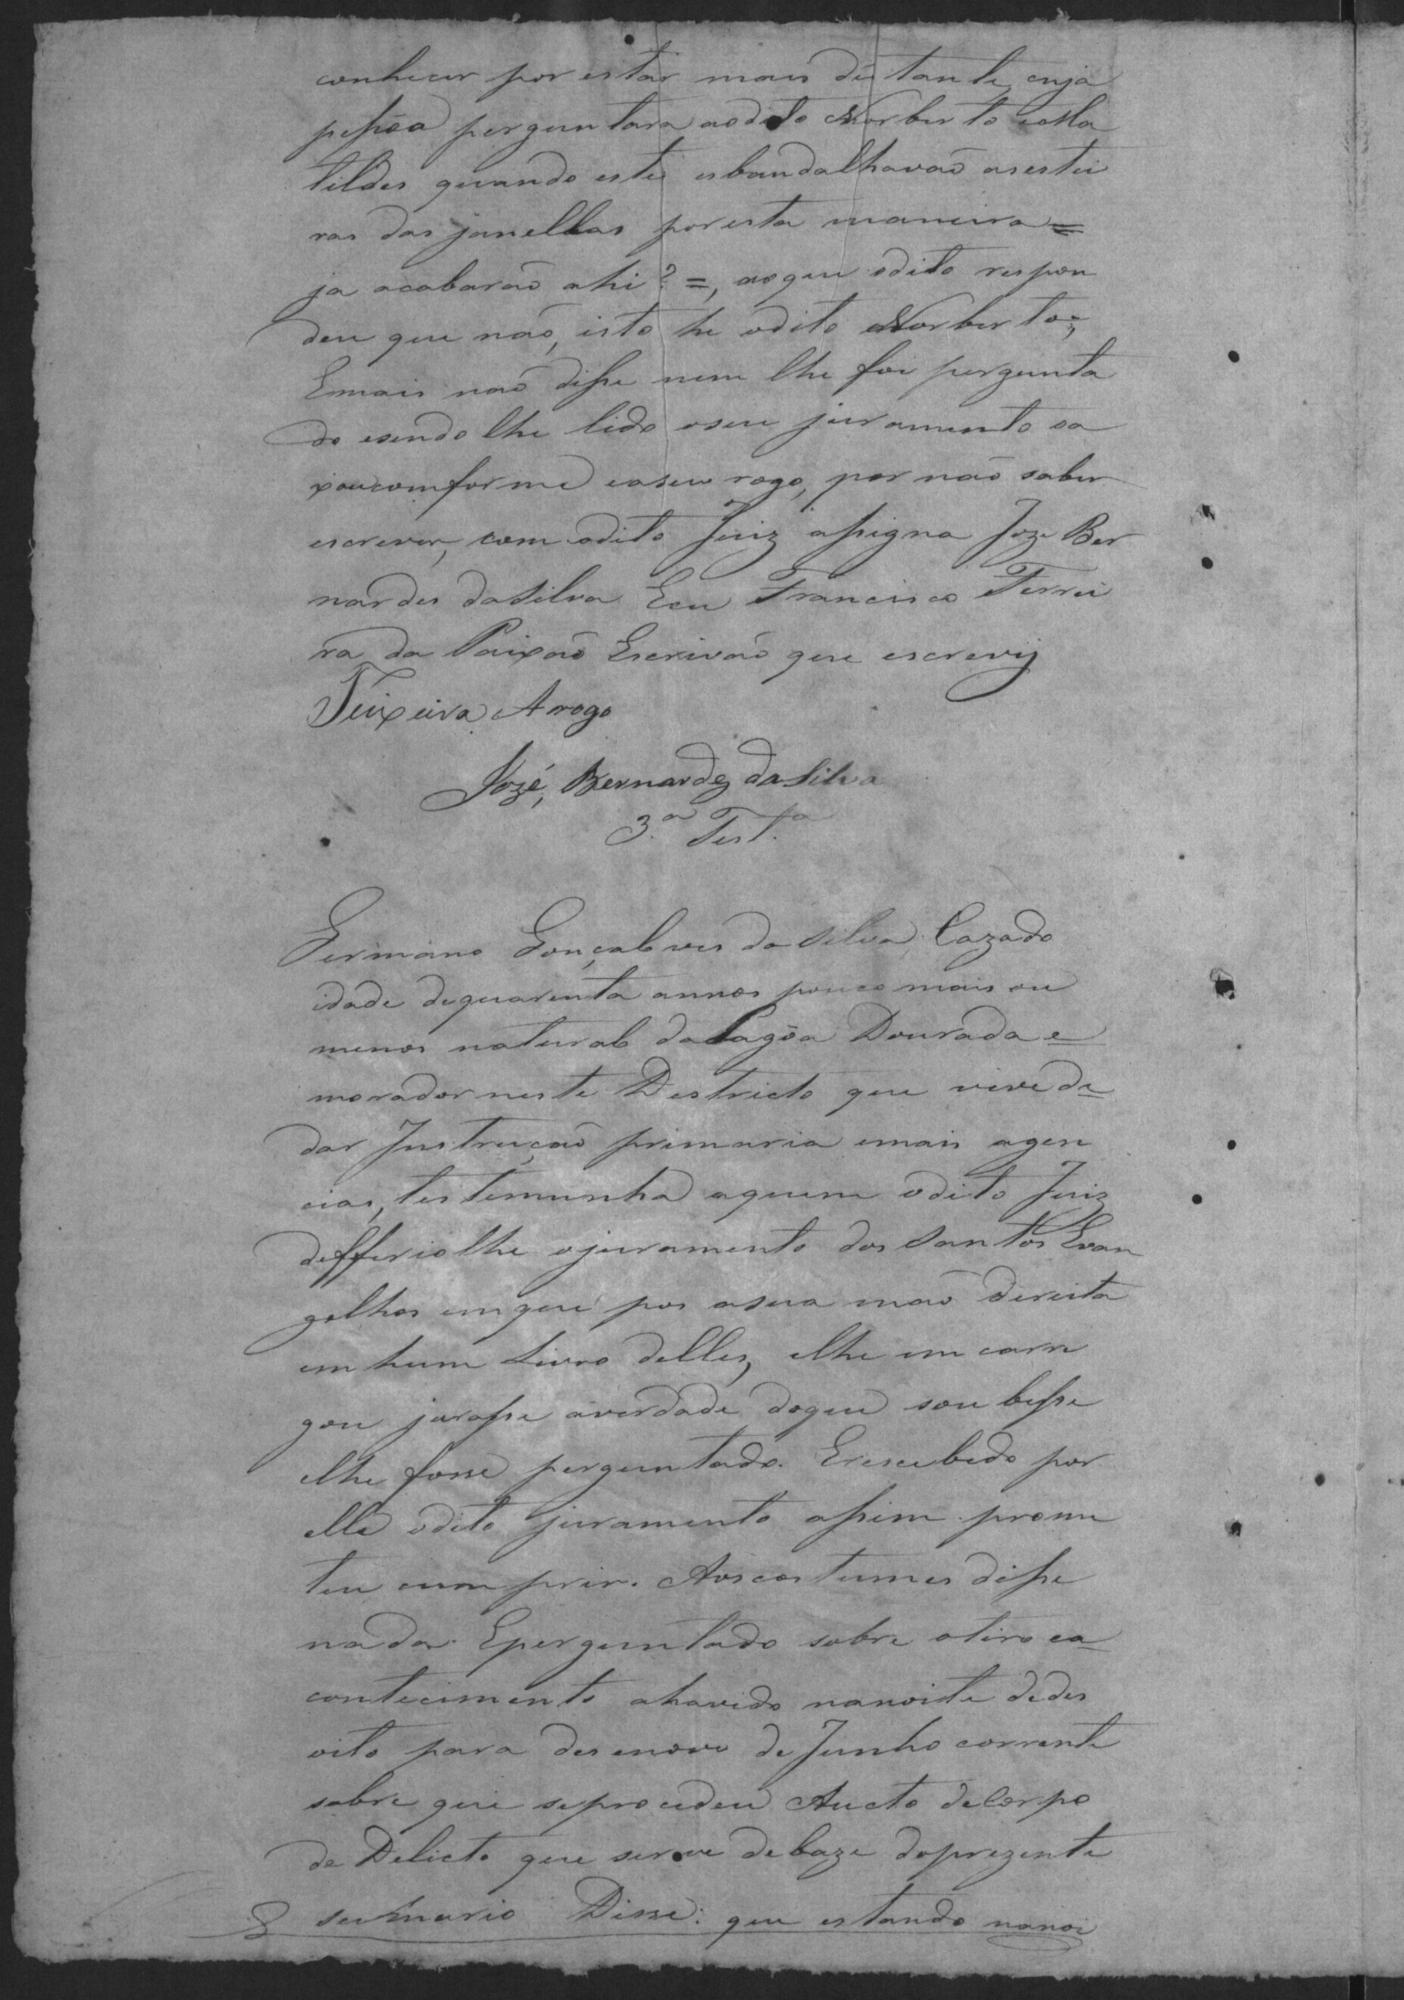 conhecer por estar mais distante, cuja
pessôa perguntara aodito Norberto eMa
tildes quando estes esbandalhavaõ asestei
ras das janellas poresta maneira =
ja acabaraõ ahi? =, aoque odito respon
deu que naõ, isto he odito Norberto =,
Emais naõ disse nem lhe foi pergunta
do esendo lhe lido oseu juramento oa
xouconforme easeu rogo, por naõ saber
escrever, com odito Juiz assigna Joze Ber
nardes daSilva Eeu Francisco Ferrei
ra da Paixaõ Escrivaõ que escrevy
Teixeira Arogo
José, Bernardes daSilva
3.ª Test.ª
Germano Gonçalves daSilva, Cazado
idade dequarenta annos pouco mais ou
menos natural daLagôa Dourada e
morador neste Destricto que vive de
dar Instruçaõ primaria emais agen
cias, testemunha aquem odito Juiz
defferiolhe ojuramento dos Santos Evan
gelhos emque pos asua maõ direita
em hum Livro delles, elhe em carre
gou jurasse averdade doque soubesse
elhe fosse perguntado. Erescebido por
elle odito juramento assim prome
teu cumprir. Aoscostumes disse
nada. Eperguntado sobre otiro ea
contecimento ahavido nanoite dedes
oito para desenove deJunho corrente
sobre que seprocedeu Aucto deCorpo
de Delicto que serve debaze doprezente
summario Disse: que estando nanoi